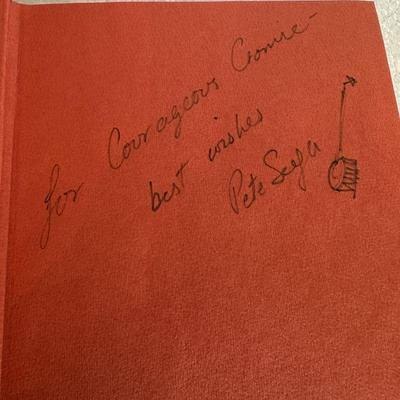 for Courageous Connie -
best wishes
Pete Seeger